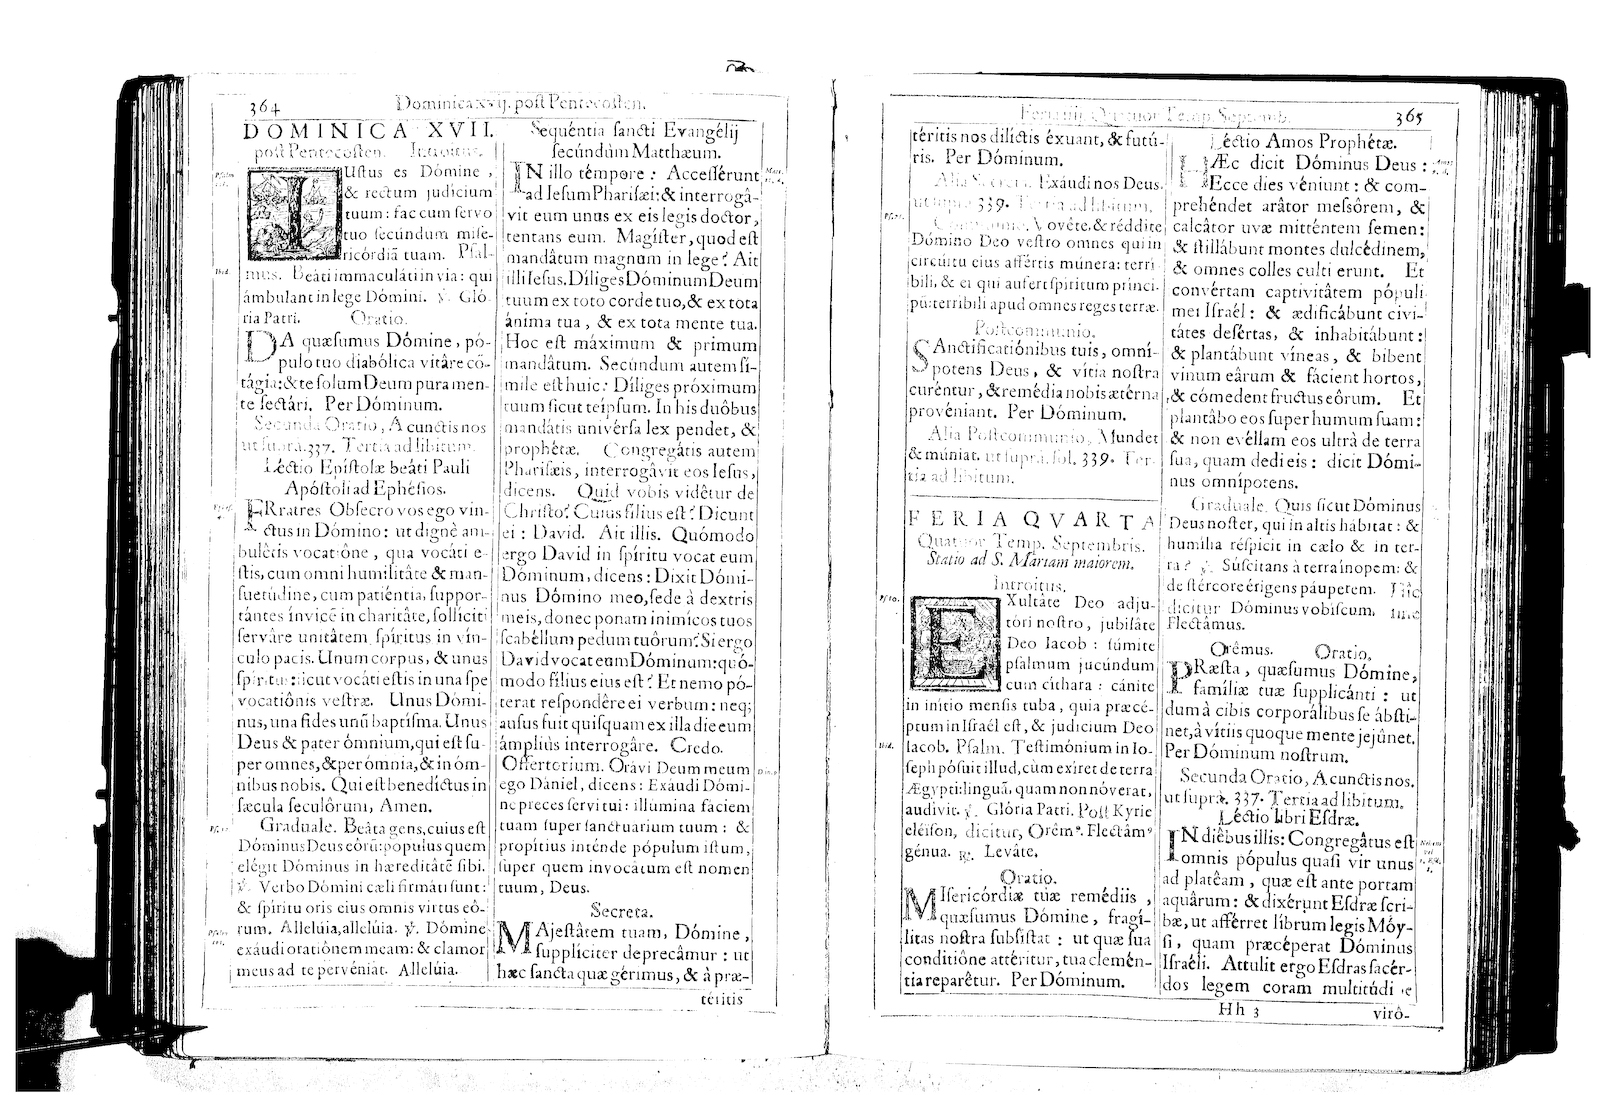 364
Dominica xvij. post Pentecosten.
DOMINICA XVII.
post Pentecosten. Introitus.
IUstus es Dómine,
& rectum judícium
tuum: fac cum servo
tuo secúndum mise-
ricórdiã tuam. Psal-
mus. Beáti immaculáti in via: qui
ámbulant in lege Dómini. ℣. Gló-
ria Patri. Oratio.
DA quæsumus Dómine, pó-
pulo tuo diabólica vitâre cõ-
tágia: & te solum Deum pura men-
te sectári. Per Dóminum.
Secunda Oratio, A cunctis nos
ut suprà.337. Tertia ad libitum.
Léctio Epístolæ beáti Pauli
Apóstoli ad Ephésios.
FRratres Obsecro vos ego vin-
ctus in Dómino: ut dignè am-
bulétis vocatióne, qua vocáti e-
stis, cum omni humilitâte & man-
suetúdine, cum patiéntia, suppor-
tántes ínvicẽ in charitâte, sollíciti
servâre unitâtem spíritus in vín-
culo pacis. Unum corpus, & unus
spíritus: sicut vocáti estis in una spe
vocatiônis vestræ. Unus Dómi-
nus, una fides unũ baptísma. Unus
Deus & pater ómnium, qui est su-
per omnes, & per ómnia, & in óm-
nibus nobis. Qui est benedíctus in
sæcula seculôrum, Amen.
Graduale. Beâta gens, cuius est
Dóminus Deus eórũ: pópulus quem
elégit Dóminus in hæreditâtẽ sibi.
℣. Verbo Dómini cæli firmáti sunt:
& spíritu oris eius omnis virtus eô-
rum. Allelúia, allelúia. ℣. Dómine
exáudi oratiónem meam: & clamor
meus ad te pervéniat. Allelúia.
Sequéntia sancti Evangélij
secúndum Matthæum.
IN illo témpore: Accessérunt
ad Iesum Pharisæi: & interrogâ-
vit eum unus ex eis legis doctor,
tentans eum. Magíster, quod est
mandátum magnum in lege? Ait
illi Iesus. Díliges Dóminum Deum
tuum ex toto corde tuo, & ex tota
ánima tua, & ex tota mente tua.
Hoc est máximum & primum
mandátum. Secúndum autem sí-
mile est huic: Díliges próximum
tuum sicut teípsum. In his duôbus
mandátis univérsa lex pendet, &
prophétæ. Congregátis autem
Pharisæis, interrogâvit eos Iesus,
dicens. Quid vobis vidêtur de
Christo? Cuius filius est? Dicunt
ei: David. Ait illis. Quómodo
ergo David in spíritu vocat eum
Dóminum, dicens: Dixit Dómi-
nus Dómino meo, sede à dextris
meis, donec ponam inimícos tuos
scabéllum pedum tuôrum? Si ergo
David vocat eum Dóminum: quó-
modo fílius eius est? Et nemo pó-
terat respondêre ei verbum: neq;
ausus fuit quisquam ex illa die eum
ámpliùs interrogâre. Credo.
Offertorium. Orávi Deum meum
ego Dániel, dicens: Exáudi Dómi-
ne preces servi tui: illúmina fáciem
tuam super sanctuarium tuum: &
propítius inténde pópulum istum,
super quem invocátum est nomen
tuum, Deus.
Secreta.
MAjestâtem tuam, Dómine,
supplíciter deprecâmur: ut
hæc sancta quæ gérimus, & à præ-
téritis
Feria iiij. Quatuor Temp. Septemb.
365
téritis nos dilíctis éxuant, & futú-
ris. Per Dóminum.
Alia Secreta. Exáudi nos Deus.
ut supra 339. Tertia ad libitum.
Communio. Vovête, & réddite
Dómino Deo vestro omnes qui in
circúitu eius affértis múnera: terri-
bili, & ei qui aufert spíritum prínci-
pũ: terribili apud omnes reges terræ.
Postcommunio.
SAnctificatiónibus tuis, omní-
potens Deus, & vítia nostra
curéntur, & remédia nobis ætérna
provéniant. Per Dóminum.
Alia Postcommunio, Mundet
& múniat. ut suprà. fol. 339. Ter-
tia ad libitum.
FERIA QVARTA
Quatuor Temp. Septembris.
Statio ad S. Mariam maiorem.
Introitus.
EXultáte Deo adju-
tóri nostro, jubiláte
Deo Iacob: súmite
psalmum jucúndum
cum cíthara: cánite
in inítio mensis tuba, quia præcé-
ptum in Israél est, & judícium Deo
Iacob. Psalm. Testimónium in Io-
seph pósuit illud, cùm exíret de terra
Ægypti: linguã, quam non nóverat,
audívit. ℣. Glória Patri. Post Kyrie
eléison, dicitur, Orém⁹. Flectám⁹
génua. ℟. Leváte.
Oratio.
MIsericórdiæ tuæ remédiis,
quæsumus Dómine, fragí-
litas nostra subsístat: ut quæ sua
conditiône attéritur, tua clemén-
tia reparêtur. Per Dóminum.
Léctio Amos Prophétæ.
HÆc dicit Dóminus Deus:
Ecce dies véniunt: & com-
prehéndet arâtor messôrem, &
calcátor uvæ mitténtem semen:
& stillábunt montes dulcédinem,
& omnes colles culti erunt. Et
convértam captivitâtem pópuli
mei Israél: & ædificábunt civi-
tátes desértas, & inhabitábunt:
& plantábunt víneas, & bibent
vinum eârum & fácient hortos,
& cómedent fructus eôrum. Et
plantâbo eos super humum suam:
& non evéllam eos ultrà de terra
sua, quam dedi eis: dicit Dómi-
nus omnípotens.
Graduale. Quis sicut Dóminus
Deus noster, qui in altis hábitat: &
humília réspicit in cælo & in ter-
ra? ℣. Súscitans à terra ínopem: &
de stércore érigens páuperem. Hîc
dicitur Dóminus vobíscum, sine
Flectâmus.
Orêmus. Oratio,
PRæsta, quæsumus Dómine,
famíliæ tuæ supplicánti: ut
dum à cibis corporálibus se ábsti-
net, à vítiis quoque mente jejûnet.
Per Dóminum nostrum.
Secunda Oratio, A cunctis nos.
ut suprà. 337. Tertia ad libitum.
Léctio libri Esdræ.
IN diêbus illis: Congregâtus est
omnis pópulus quasi vir unus
ad platêam, quæ est ante portam
aquârum: & dixérunt Esdræ scri-
bæ, ut afférret librum legis Móy-
si, quam præcéperat Dóminus
Israéli. Attulit ergo Esdras sacér-
dos legem coram multitúdine
Hh 3
virô-